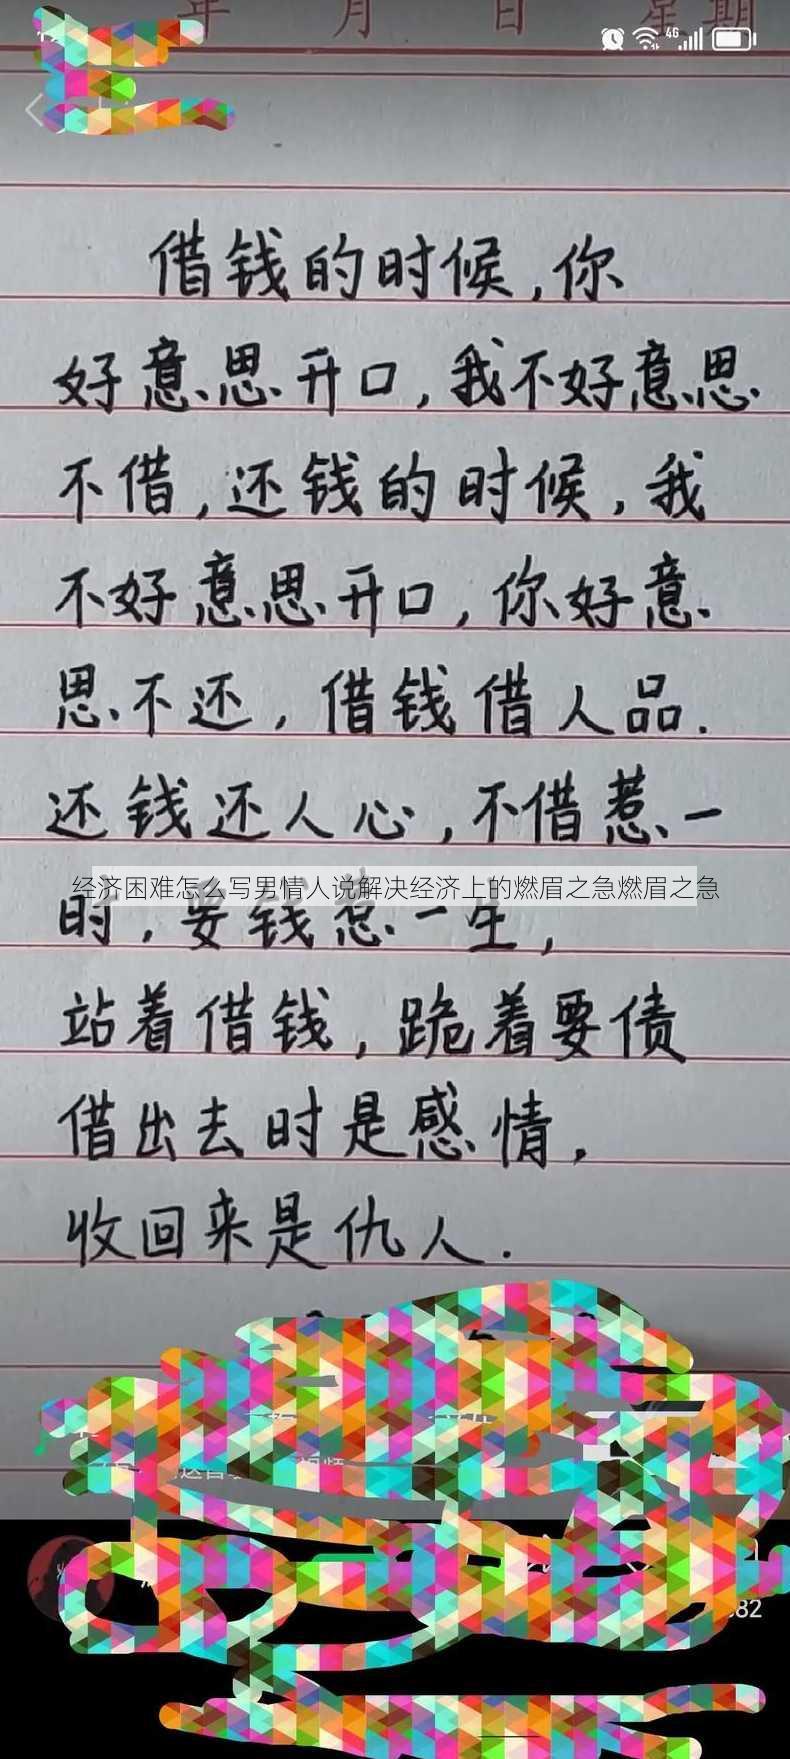 年 月 日 星期
4G
借钱的时候,你
好意思开口,我不好意思
不借,还钱的时候,我
不好意思开口,你好意
思不还,借钱借人品.
还钱还人心,不借惹一
经济困难怎么写男情人说解决经济上的燃眉之急燃眉之急
时,要钱惹一生,
站着借钱,跪着要债
借出去时是感情,
收回来是仇人.
82